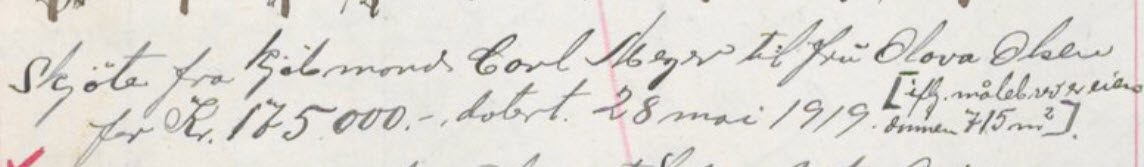 Skjöte fra Kjöbmand Carl Meyer til fru Olova Olsen
for Kr. 175.000.-, datert. 28 mai 1919.
[iflg. målebrev er eien
dommen 715 m²].